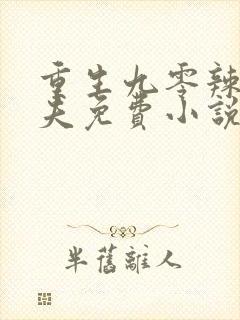 重生九零辣
夫免费小說
半舊離人